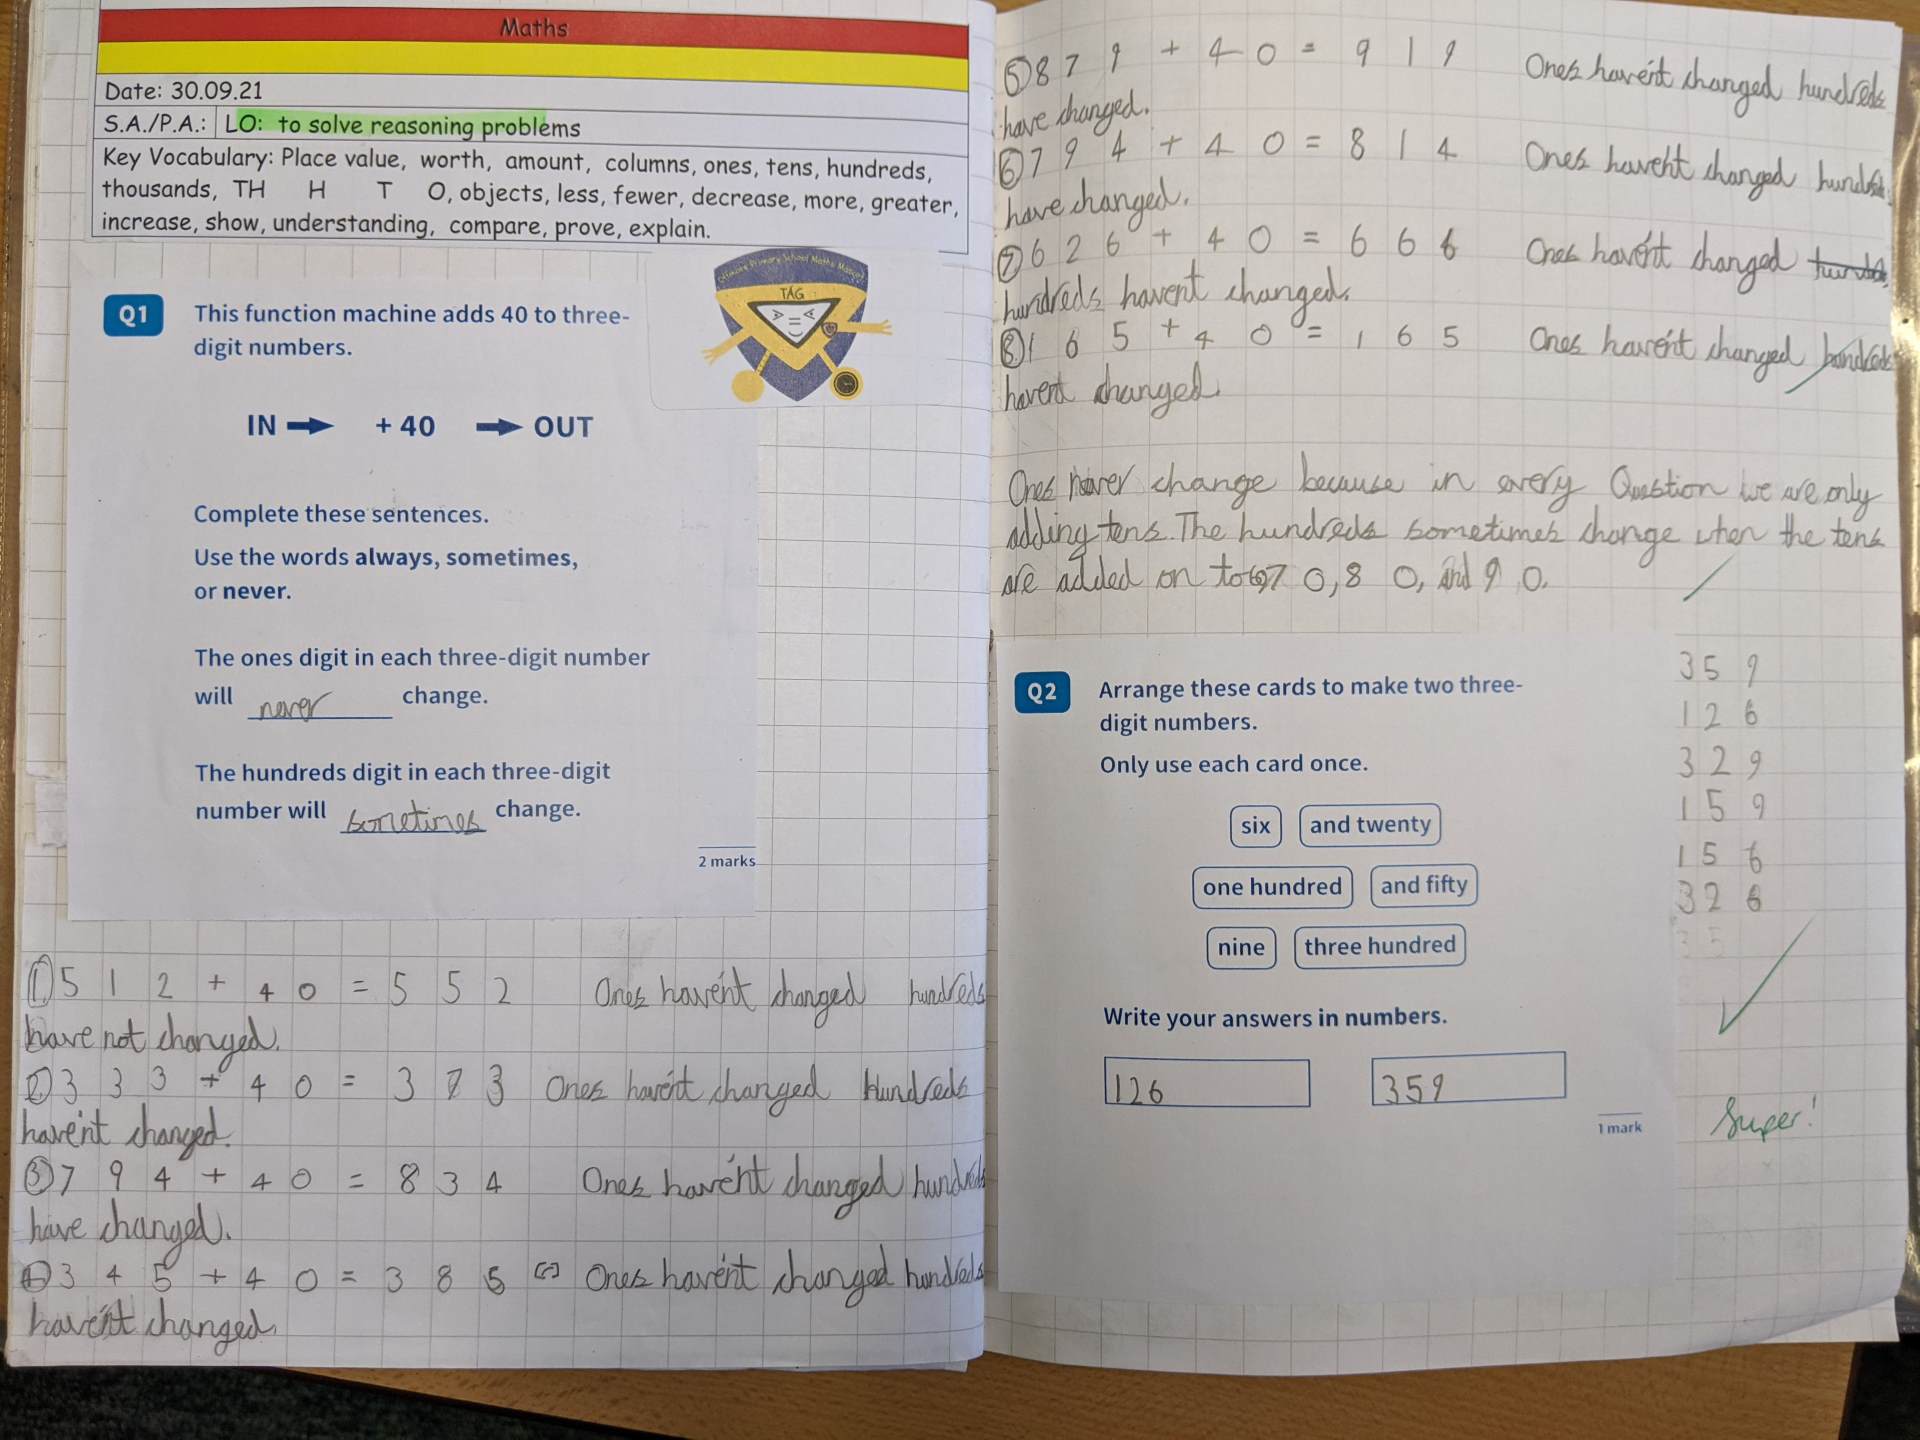 Maths
Date: 30.09.21
S.A./P.A.: LO: to solve reasoning problems
Key Vocabulary: Place value, worth, amount, columns, ones, tens, hundreds,
thousands, TH H T O, objects, less, fewer, decrease, more, greater,
increase, show, understanding, compare, prove, explain.
Primary School Maths Mascot
TAG
Q1 This function machine adds 40 to three-
digit numbers.
IN + 40 OUT
Complete these sentences.
Use the words always, sometimes,
or never.
The ones digit in each three-digit number
will never change.
The hundreds digit in each three-digit
number will sometimes change.
2 marks
① 5 1 2 + 4 0 = 5 5 2 Ones haven't changed hundreds
have not changed.
② 3 3 3 + 4 0 = 3 7 3 Ones haven't changed Hundreds
haven't changed.
③ 7 9 4 + 4 0 = 8 3 4 Ones haven't changed hundreds
have changed.
④ 3 4 5 + 4 0 = 3 8 5 Ones haven't changed hundreds
haven't changed.
⑤ 8 7 9 + 4 0 = 9 1 9 Ones haven't changed hundreds
have changed.
⑥ 7 9 4 + 4 0 = 8 1 4 Ones haven't changed hundreds
have changed.
⑦ 6 2 6 + 4 0 = 6 6 6 Ones haven't changed
hundreds havent changed.
⑧ 1 6 5 + 4 0 = 1 6 5 Ones haven't changed hundreds
havent changed.
Ones never change because in every Question we are only
adding tens. The hundreds sometimes change when the tens
are added on to 7 0, 8 0, and 9 0.
Q2 Arrange these cards to make two three-
digit numbers.
Only use each card once.
six and twenty
one hundred and fifty
nine three hundred
Write your answers in numbers.
126 359
1 mark
3 5 9
1 2 6
3 2 9
1 5 9
1 5 6
3 2 6
3 5
Super!